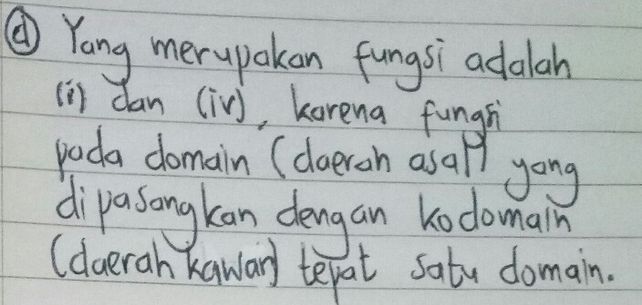 d Yang merupakan fungsi adalah
(i) dan (iv), karena fungsi
pada domain (daerah asal) yang
dipasangkan dengan kodomain
(daerah kawan) tepat satu domain.